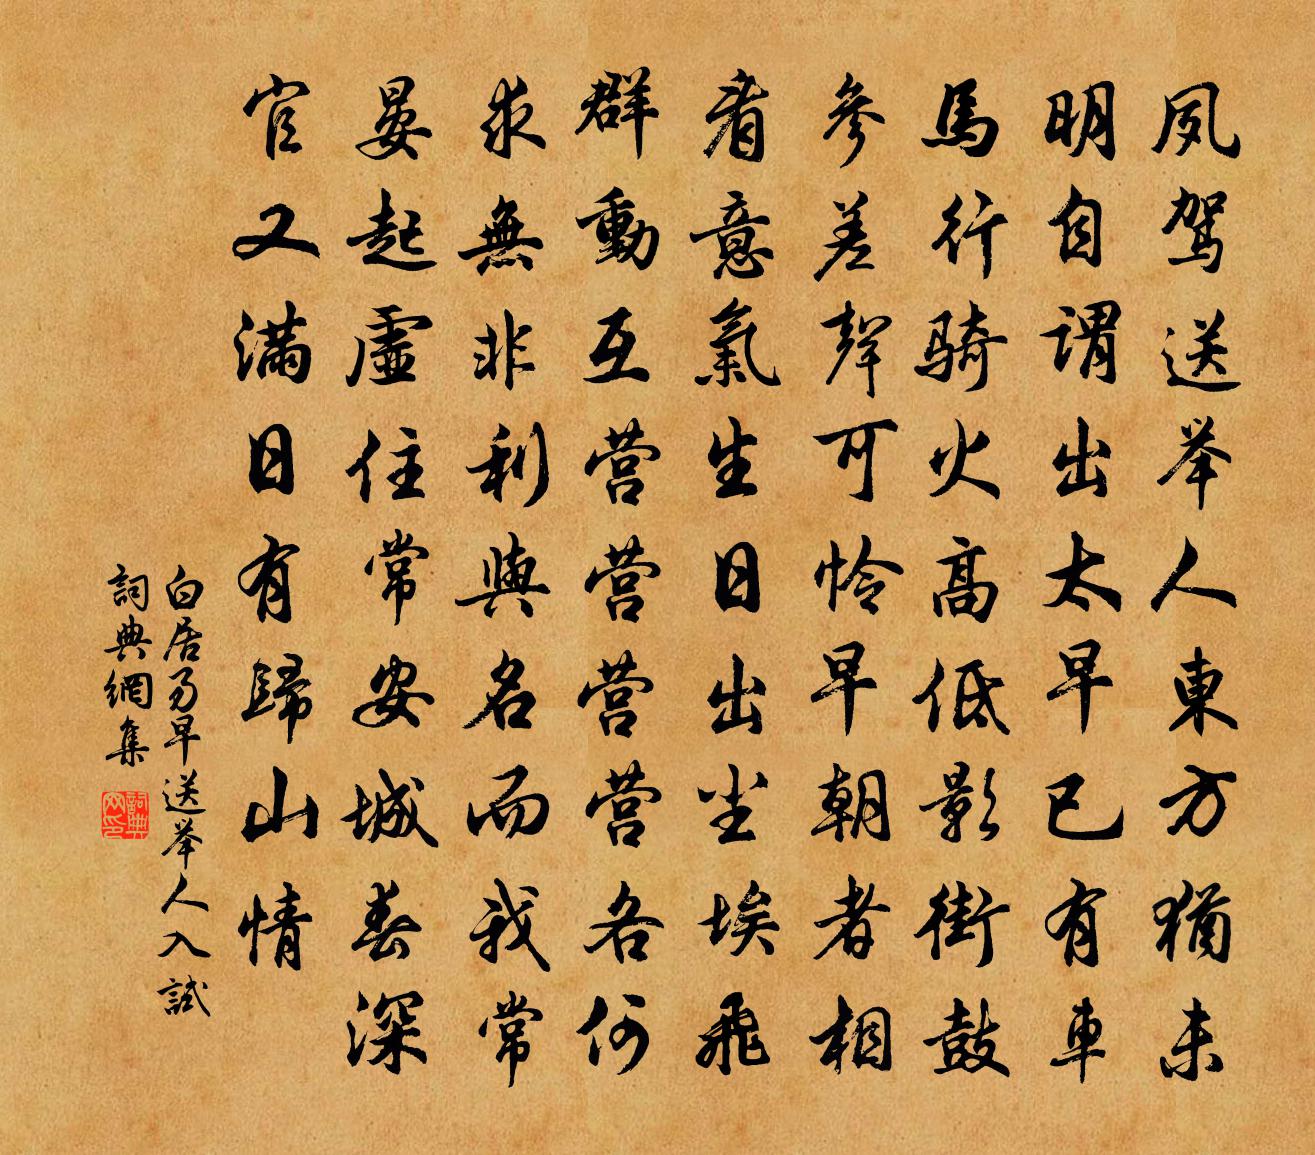 夙駕送举人東方猶未
明自謂出太早已有車
馬行騎火高低影街鼓
參差聲可怜早朝者相
看意氣生日出尘埃飛
群動互营营营营各何
求無非利與名而我常
晏起虛住常安城春深
官又滿日有歸山情
白居易早送举人入試
詞典網集
詞典网印